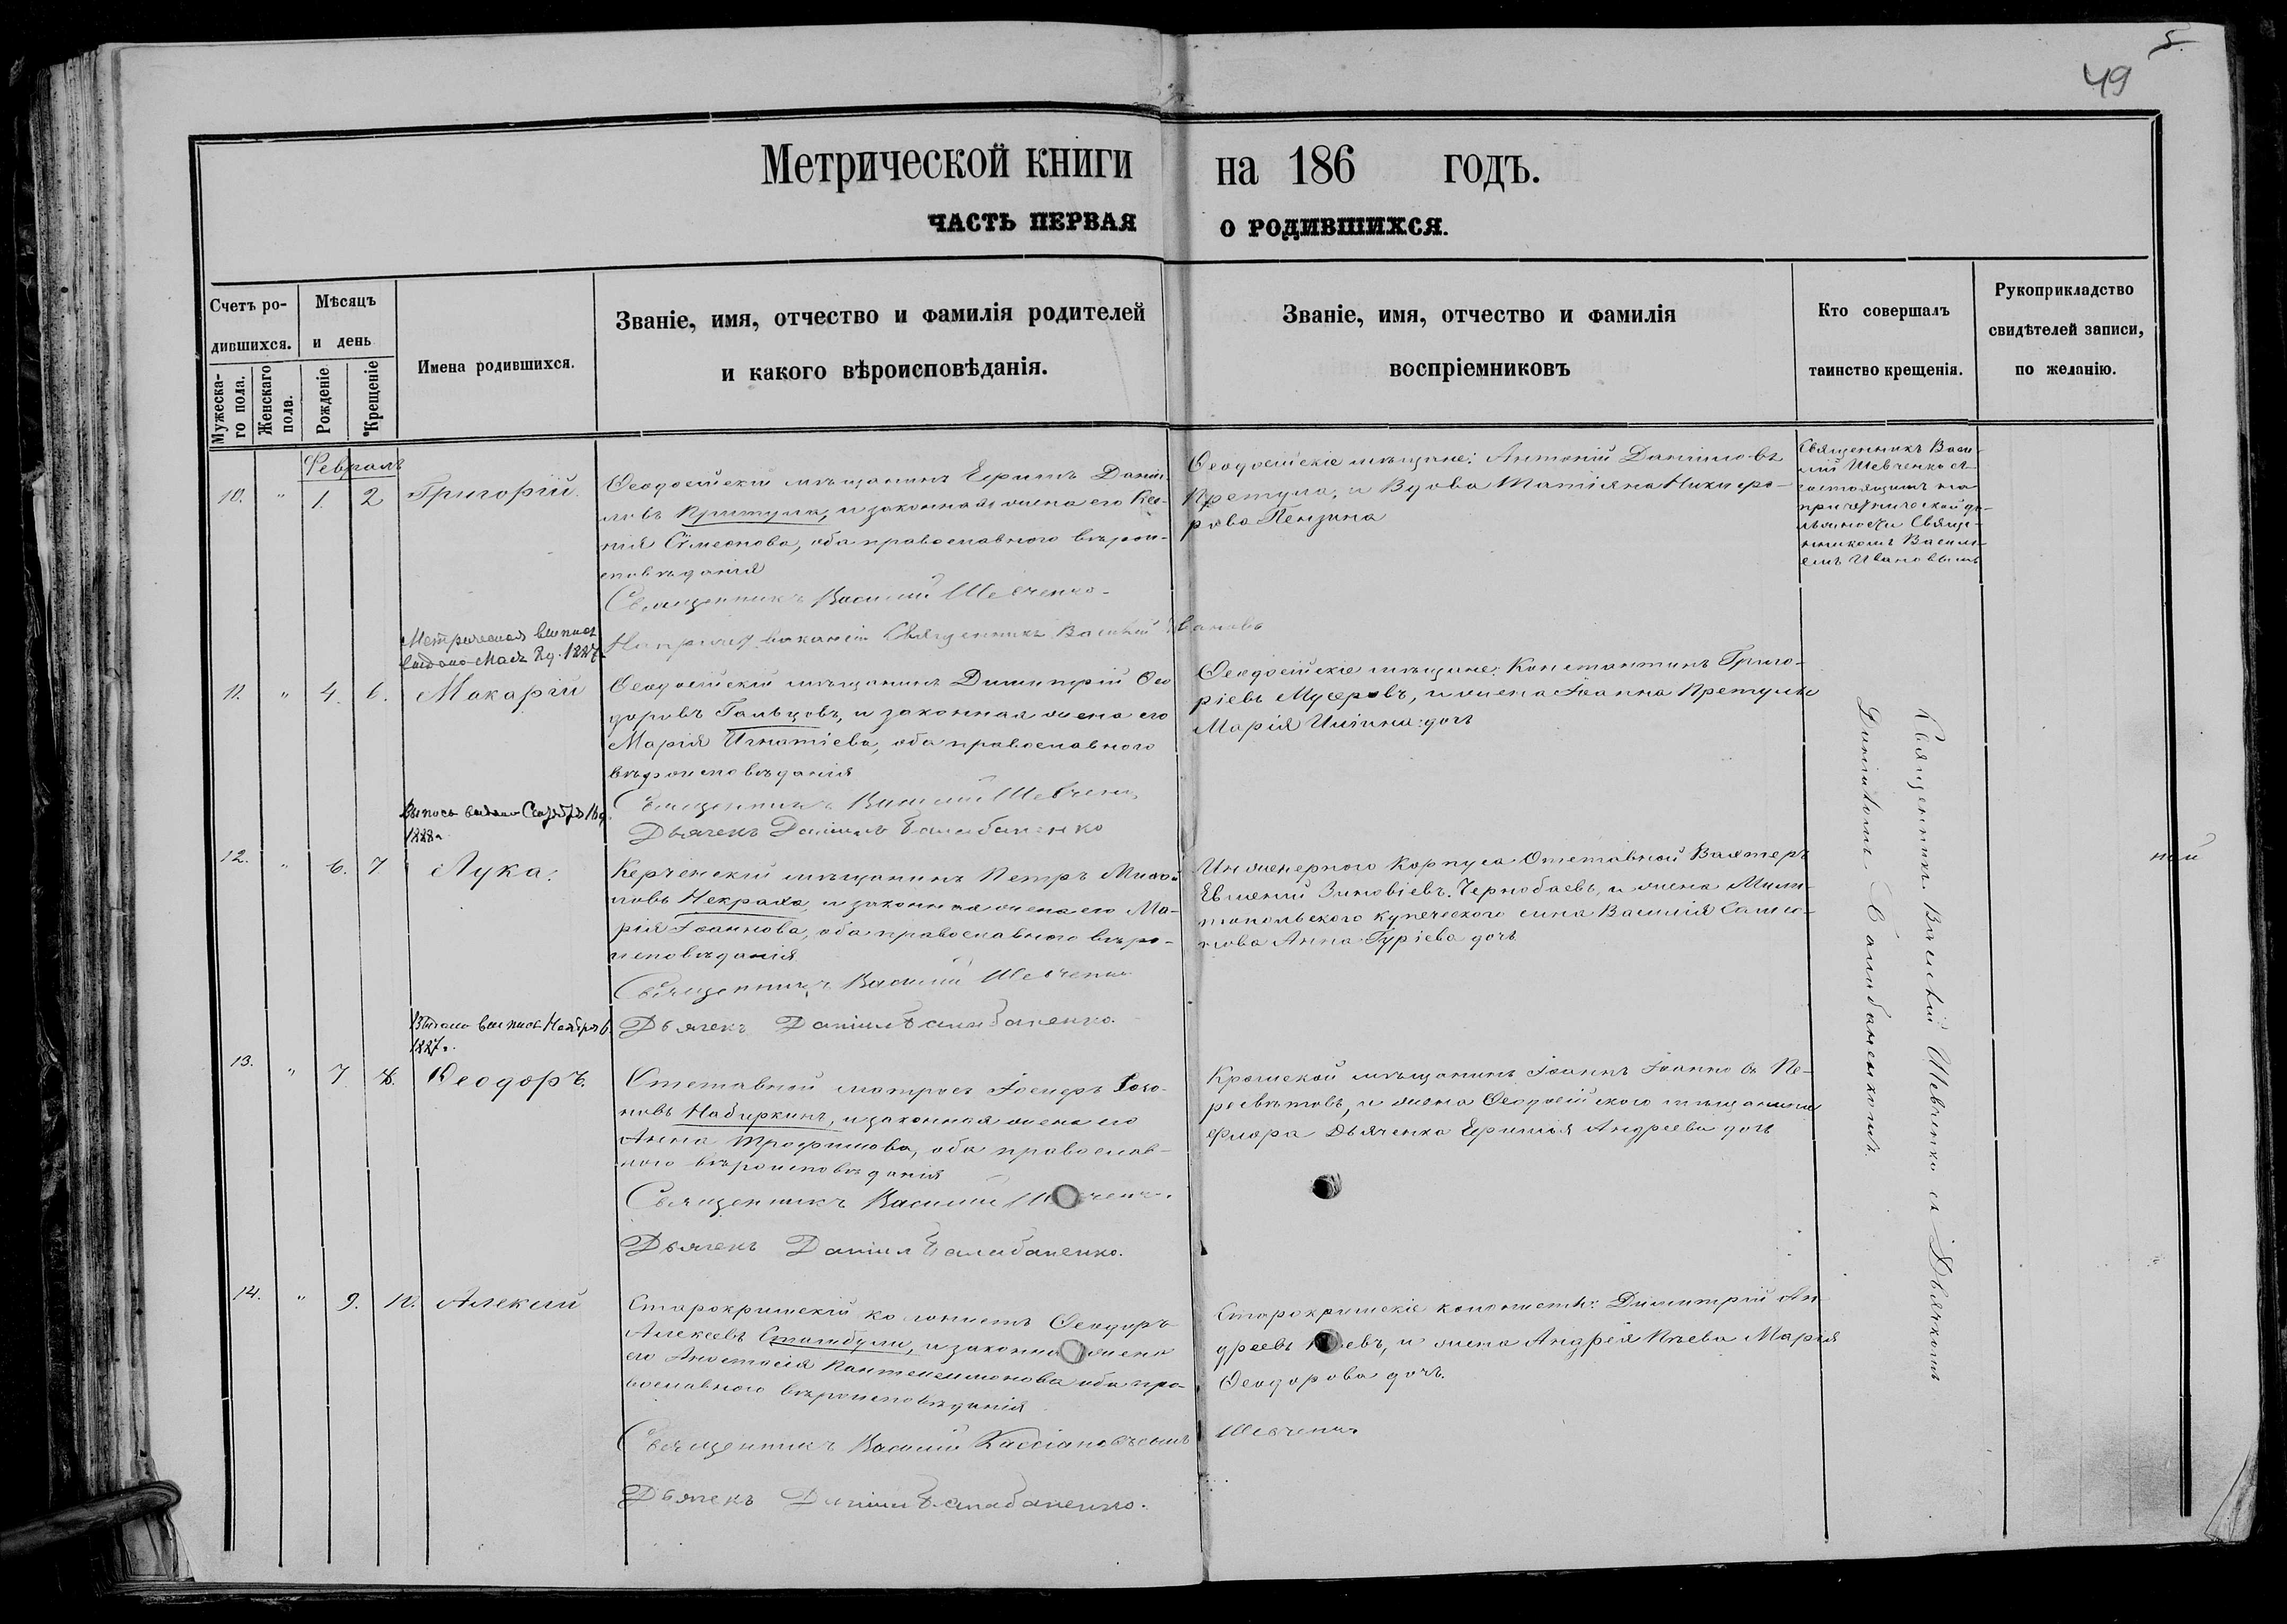 5.
49
Метрической книги на 186 годъ.
ЧАСТЬ ПЕРВАЯ О РОДИВШИХСЯ.
Счетъ ро-
дившихся.
Мужеска-
го пола.
Женскаго
пола.
Мѣсяцъ
и день
Рожденіе
Крещеніе
Имена родившихся.
Званіе, имя, отчество и фамилія родителей
и какого вѣроисповѣданія.
Званіе, имя, отчество и фамилія
воспріемниковъ
Кто совершалъ
таинство крещенія.
Рукоприкладство
свидѣтелей записи,
по желанію.
Февраль
10. " 1. 2 Григорій.
Ѳеодосійскій мѣщанинъ Ефимъ Даніи-
ловъ Притула, и законная жена его Ксе-
нія Сѵмеонова, оба православного вѣрои-
сповѣданія
Священникъ Василій Шевченко
Священникъ Василій Ивановъ
Ѳеодосійскіе мѣщане: Антоній Даніиловъ
Претула, и Вдова Татіяна Никифо-
рова Пензина
Священникъ Васи-
лій Шевченко съ
состоящимъ на
причетнической до-
лжности Свяще-
нникомъ Васили-
емъ Ивановымъ
11. " 4. 6. Макарій
Ѳеодосійскій мѣщанинъ Димитрій Ѳео
доровъ Гальцовъ, и законная жена его
Марія Игнатіева, оба православного
вѣроисповѣданія
Священникъ Василій Шевченко
Дьячекъ Даніилъ Балабаненко
Ѳеодосійскіе мѣщане: Константинъ Григо-
ріевъ и жена Іоанна Претулы
Марія Иліина дочь
1888 г.
12. " 6. 7 Лука.
Керченскій мѣщанинъ Петръ Михай
ловъ Некраха, и законная жена его Ма-
рія Іоаннова, оба православного вѣро-
исповѣданія
Священникъ Василій Шевченко
Дьячекъ Даніилъ Балабаненко.
Инженерного Корпуса Отставной Вахтеръ
Евгеній Зиновіевъ Чернобаевъ, и жена Мели-
топольского купеческого сына Василія
Анна Гуріева дочь
Выдана выпись Ноября 6
1887 г.
13. " 7 8. Ѳеодоръ.
Отставной матросъ Іосифъ
Набиркинъ, и законная жена его
Анна Трофимова, оба православ-
ного вѣроисповѣданія
Священникъ Василій
Дьячекъ Даніил Балабаненко.
мѣщанинъ Іоаннъ Іоанновъ Пе-
ресвѣтовъ, и жена Ѳеодосійского мѣщанина
Флора Дьяченка Ефимія Андреева дочь
14. " 9. 10. Алексій
Старокрымскій колонистъ Ѳеодоръ
Алексеевъ Стамбули, и законная жена
его Анастасія Пантелеимонова оба пра-
вославного вѣроисповѣданія
Священникъ Василій Кассіановъ сынъ Шевченко
Дьячекъ Даніил Балабаненко.
Старокрымскіе колонисты: Димитрій Ан
дреевъ и жена Андрея Марія
Ѳеодорова дочь.
Священникъ Василій Шевченко съ Дьячкомъ
Даніиломъ Балабаненкомъ.